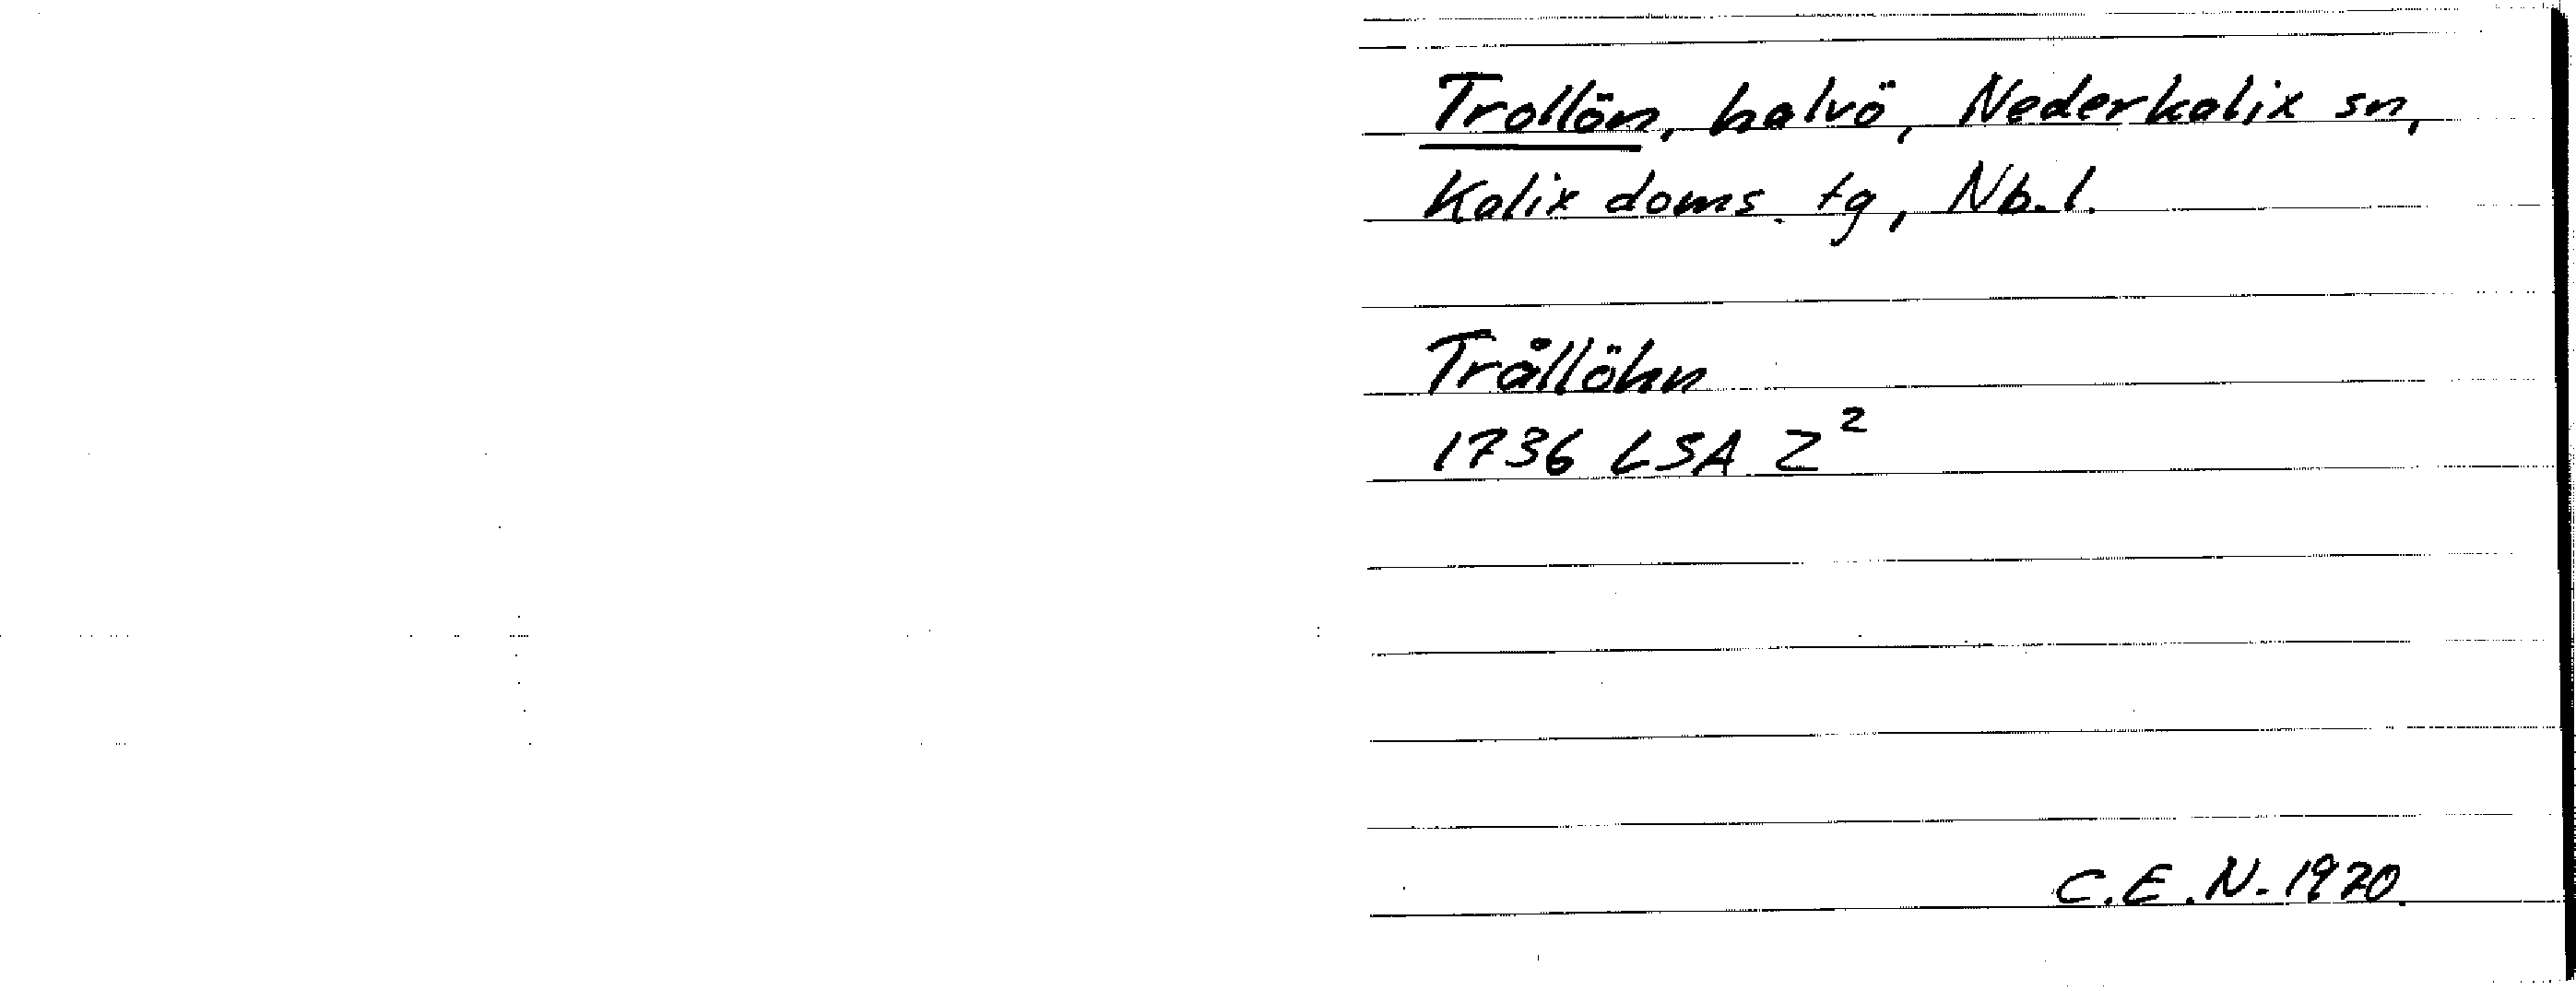 Trollön, halvö, Nederkalix sn,
Kalix doms. tg, Nb. l.
Trållöhn
1736 LSA Z²
C.E.N. 1970.